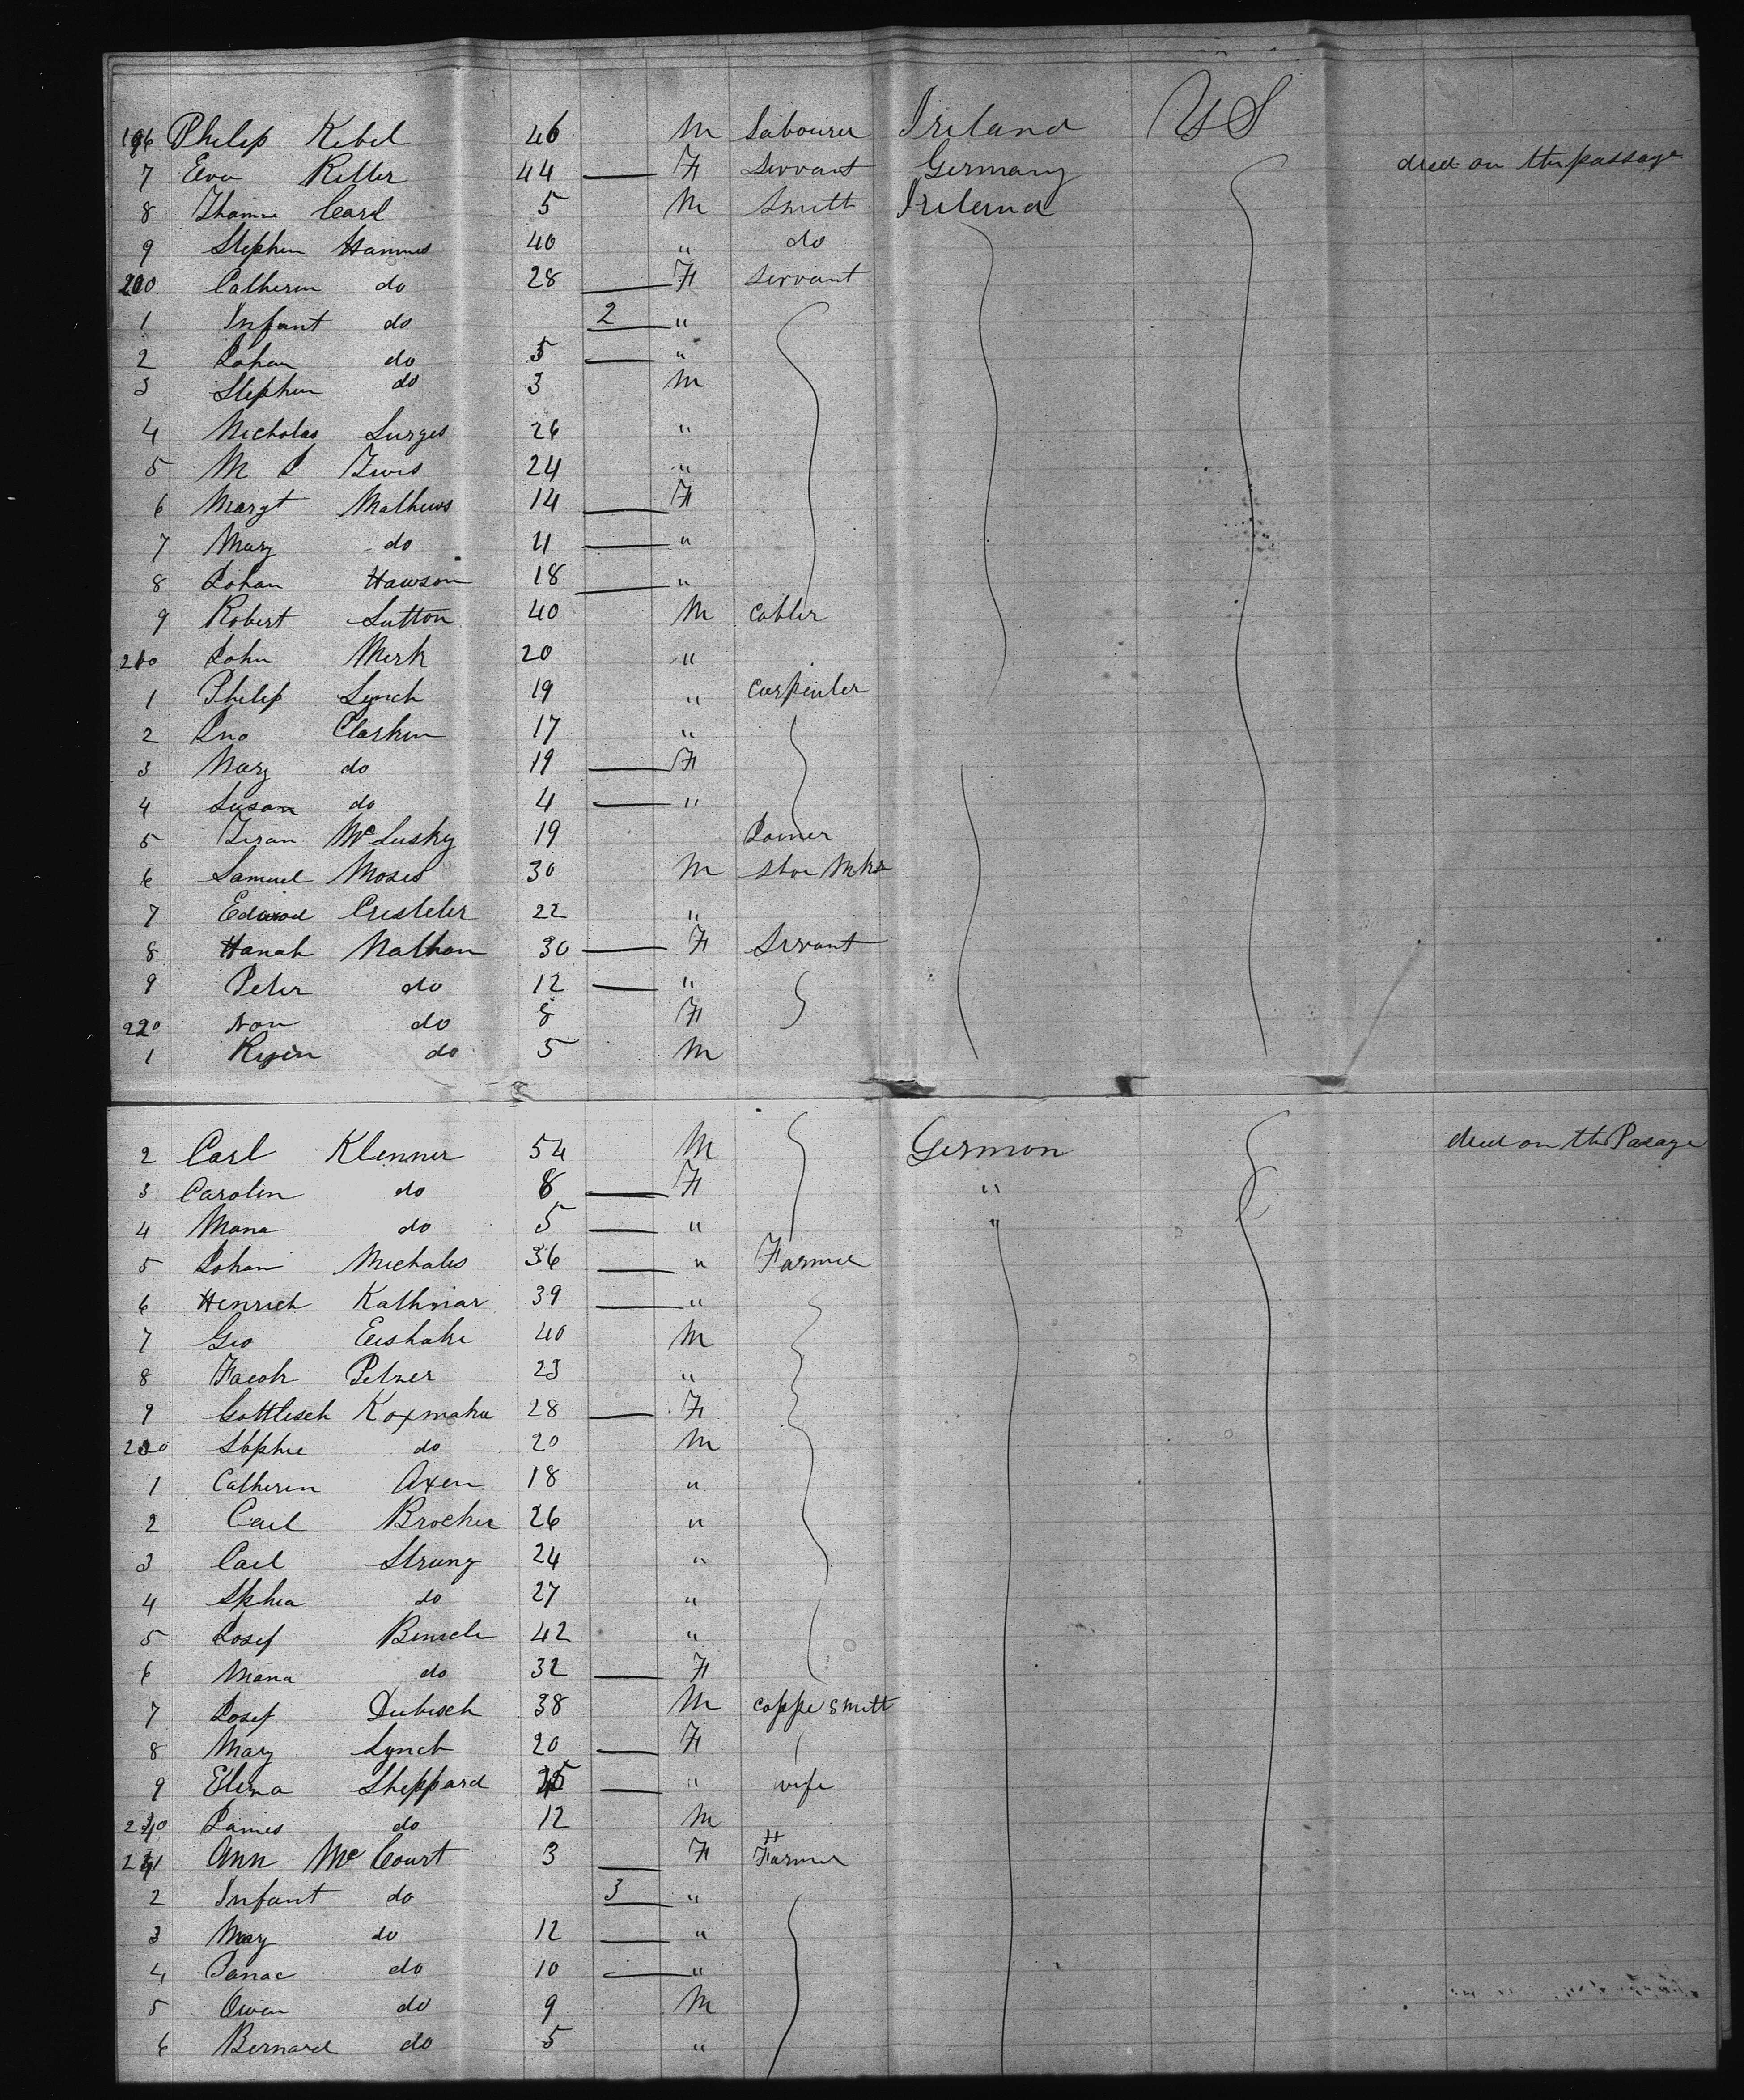 196 Philip Kebel 46 M Labourer Ireland US
7 Eva Keller 44 F Servant Germany died on the passage
8 Carl 5 M Smitt Ireland
9 Stephen Hammes 40 " do
200 Catheren do 28 F Servant
1 Infant do 2 "
2 Johan do 5 "
3 Stephen do 3 M
4 Nicholas Surges 26 "
5 M J 24 "
6 Margt Mathews 14 F
7 Mary do 11 "
8 Johan Hawson 18 "
9 Robert Sutton 40 M Cobler
210 John Merk 20 "
1 Philip Lynch 19 " Carpenter
2 Jno Clarken 17 "
3 Mary do 19 F
4 Susan do 4 "
5 McLusky 19 Joiner
6 Samuel Moses 30 M Shoe Mkr
7 Edward Cresteler 22 "
8 Hanah Nathan 30 F Servant
9 Peter do 12 "
220 Non do 8 F
1 do 5 M
2 Carl Klenner 54 M German died on the Pasage
3 Carolin do 8 F "
4 Mana do 5 " "
5 Johan Michales 36 " Farmer
6 Henrich Kathmar 39 "
7 Geo Eeishake 40 M
8 Jacob Petzer 23 "
9 Gottlisch Koxmaker 28 F
230 Sophie do 20 M
1 Catheren Axen 18 "
2 Carl Brocher 26 "
3 Carl Strung 24 "
4 Sphia do 27 "
5 Josef 42 "
6 Mana do 32 F
7 Josef Dubisch 38 M Coppe Smitt
8 Mary Lynch 20 F
9 Eliza Sheppard " wife
240 James do 12 M
241 Ann McCourt 3 F Farmer
2 Infant do 3 "
3 Mary do 12 "
4 do 10 "
5 Owen do 9 M
6 Bernard do 5 "